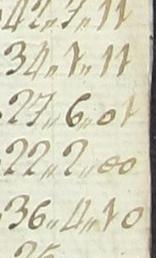 42〃7〃11
34〃1〃11
27〃6〃01
22〃2〃00
36〃4〃10